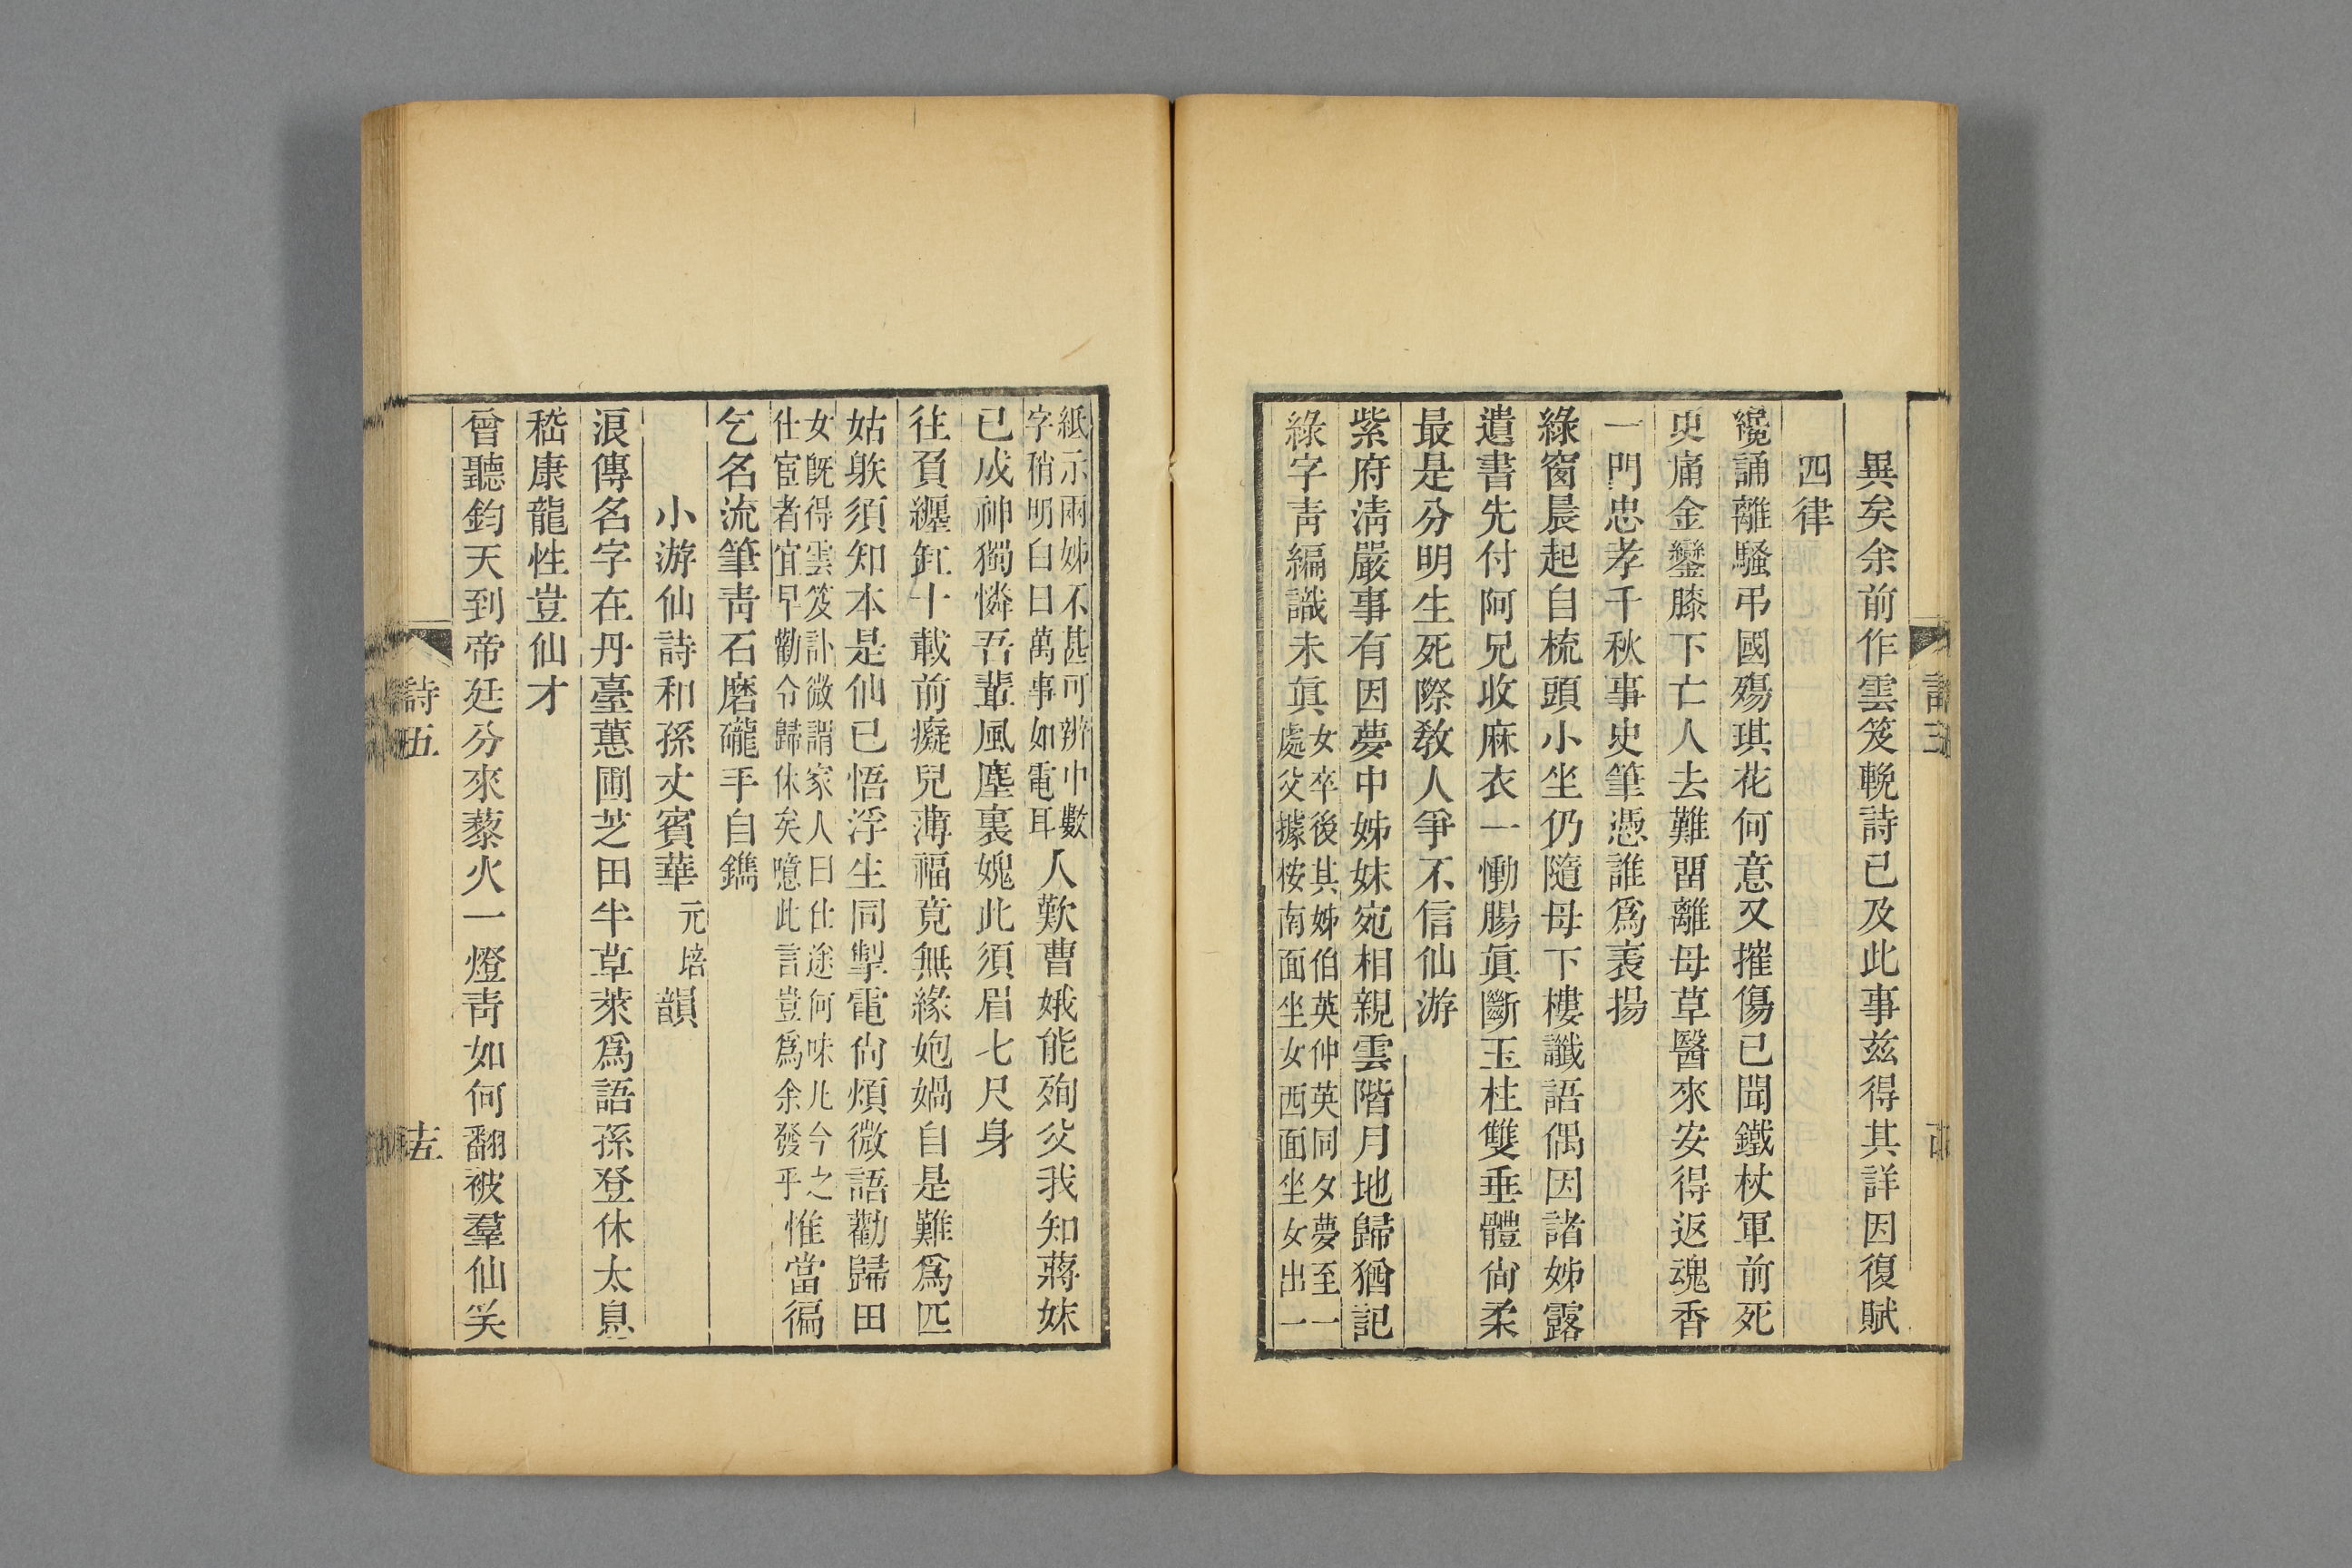 異矣余前作雲笈輓詩已及此事茲得其詳因復賦
四律
纔誦離騷弔國殤琪花何意又摧傷已聞鐵杖軍前死
更痛金鑾膝下亡人去難畱離母草醫來安得返魂香
一門忠孝千秋事史筆憑誰爲表揚
綠窗晨起自梳頭小坐仍隨母下樓讖語偶因諸姊露
遺書先付阿兄收麻衣一慟腸眞斷玉柱雙垂體尙柔
最是分明生死際敎人爭不信仙游
紫府淸嚴事有因夢中姊妹宛相親雲階月地歸猶記
綠字靑編識未眞女卒後其姊伯英仲英同夕夢至一
處父據桉南面坐女西面坐女出一
紙示兩姊不甚可辨中數
字稍明白曰萬事如電耳人歎曹娥能殉父我知蔣妹
已成神獨憐吾輩風塵裏媿此須眉七尺身
往頁纏缸十載前癡兒薄福竟無緣媤媧自是難爲匹
姑䠶須知本是仙已悟浮生同掣電尙煩微語勸歸田
女旣得雲笈訃微謂家人曰仕途何味凡今之
仕宦者宜早勸令歸休矣噫此言豈爲余發乎惟當徧
乞名流筆靑石磨礲手自鐫
小游仙詩和孫丈賓華元培韻
浪傳名字在丹臺蕙圃芝田半草萊爲語孫登休太息
嵇康龍性豈仙才
曾聽鈞天到帝廷分來藜火一燈靑如何翻被羣仙笑
詩五
十五